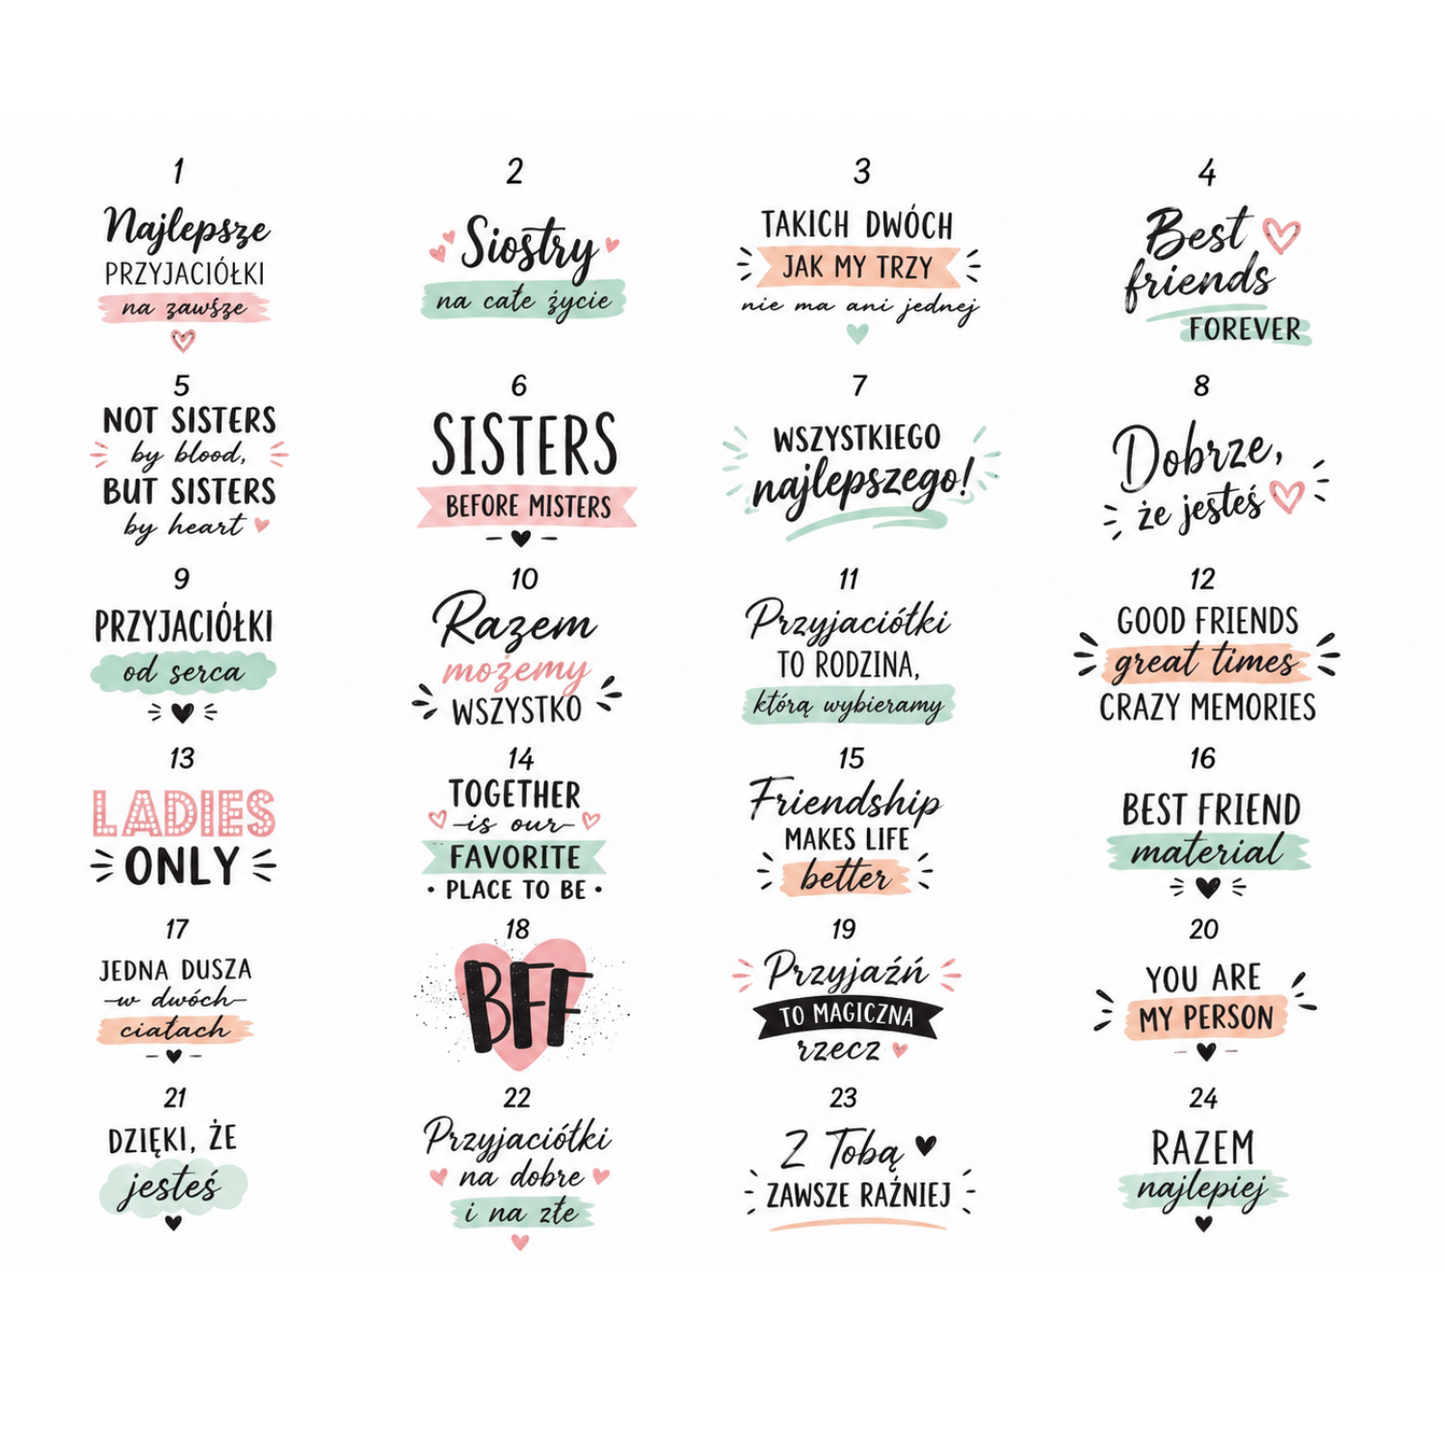 1
Najlepsze
PRZYJACIÓŁKI
na zawsze
2
Siostry
na całe życie
3
TAKICH DWÓCH
JAK MY TRZY
nie ma ani jednej
4
Best
friends
FOREVER
5
NOT SISTERS
by blood,
BUT SISTERS
by heart
6
SISTERS
BEFORE MISTERS
7
WSZYSTKIEGO
najlepszego!
8
Dobrze,
że jesteś
9
PRZYJACIÓŁKI
od serca
10
Razem
możemy
WSZYSTKO
11
Przyjaciółki
TO RODZINA,
którą wybieramy
12
GOOD FRIENDS
great times
CRAZY MEMORIES
13
LADIES
ONLY
14
TOGETHER
is our
FAVORITE
• PLACE TO BE •
15
Friendship
MAKES LIFE
better
16
BEST FRIEND
material
17
JEDNA DUSZA
w dwóch
ciałach
18
BFF
19
Przyjaźń
TO MAGICZNA
rzecz
20
YOU ARE
MY PERSON
21
DZIĘKI, ŻE
jesteś
22
Przyjaciółki
na dobre
i na złe
23
Z Tobą
ZAWSZE RAŹNIEJ
24
RAZEM
najlepiej